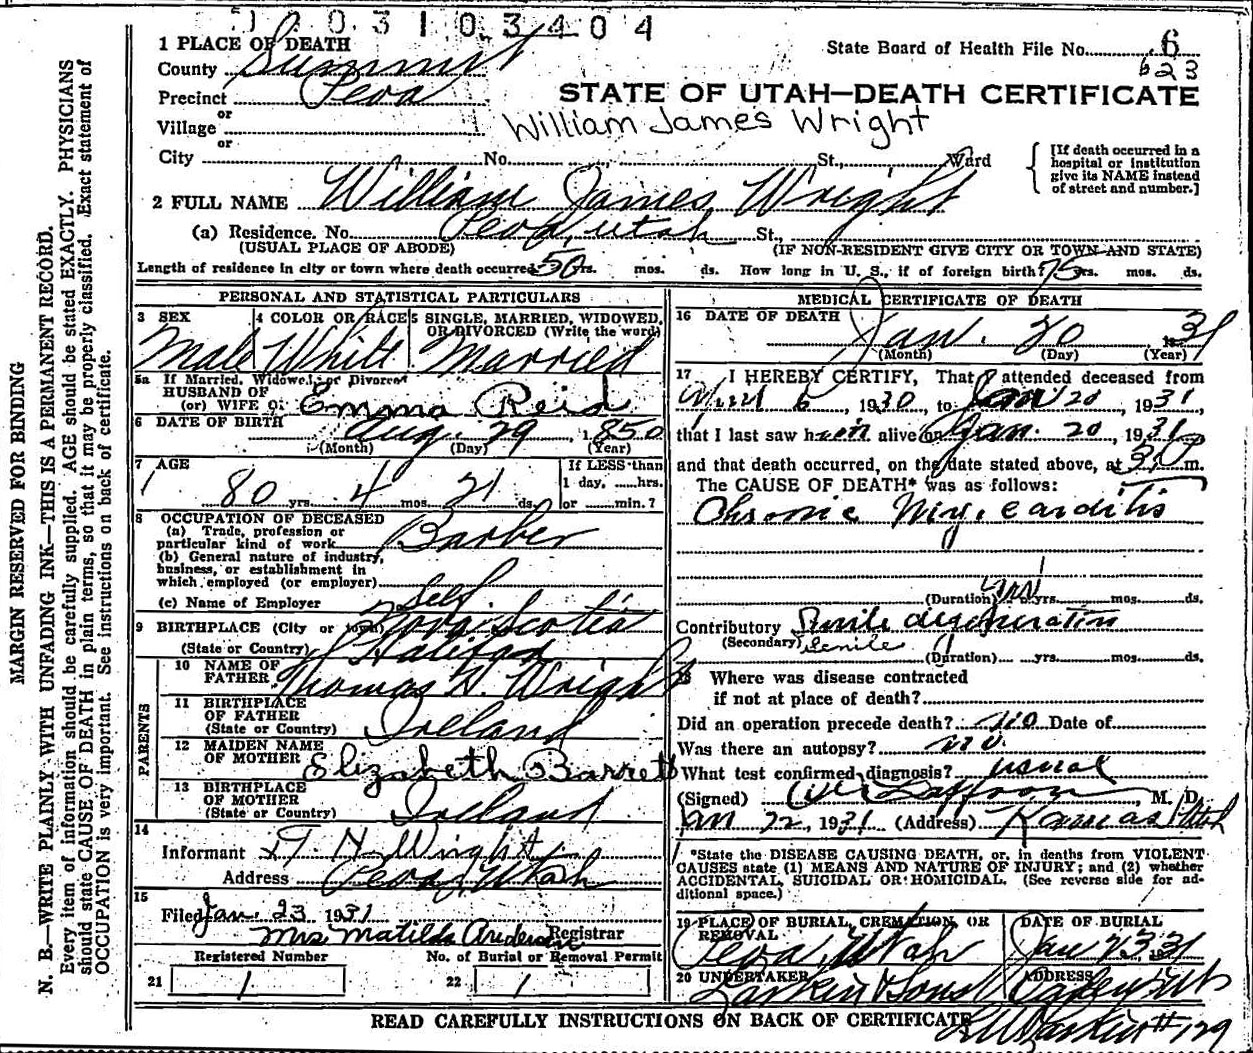 0203103404
1 PLACE OF DEATH
State Board of Health File No. 6
623
County Summit
Precinct Peoa
STATE OF UTAH—DEATH CERTIFICATE
or
Village
William James Wright
or
City No. St., Ward
[If death occurred in a hospital or institution give its NAME instead of street and number.]
2 FULL NAME William James Wright
(a) Residence. No. Peoa, Utah St.,
(USUAL PLACE OF ABODE) (IF NON-RESIDENT GIVE CITY OR TOWN AND STATE)
Length of residence in city or town where death occurred 50 yrs. mos. ds. How long in U. S., if of foreign birth? 75 yrs. mos. ds.
PERSONAL AND STATISTICAL PARTICULARS
3 SEX 4 COLOR OR RACE 5 SINGLE, MARRIED, WIDOWED, OR DIVORCED (Write the word)
Male White Married
5a If Married, Widowed, or Divorced
HUSBAND OF
(or) WIFE OF Emma Reid
6 DATE OF BIRTH Aug. 29, 1850
(Month) (Day) (Year)
7 AGE If LESS than
1 day, hrs.
80 yrs. 4 mos. 21 ds. or min.?
8 OCCUPATION OF DECEASED
(a) Trade, profession or
particular kind of work Barber
(b) General nature of industry,
business, or establishment in
which employed (or employer)
(c) Name of Employer Self
9 BIRTHPLACE (City or town) Nova Scotia
(State or Country) Halifax
PARENTS
10 NAME OF
FATHER Thomas H. Wright
11 BIRTHPLACE
OF FATHER
(State or Country) Ireland
12 MAIDEN NAME
OF MOTHER Elizabeth Barrett
13 BIRTHPLACE
OF MOTHER
(State or Country) Ireland
14
Informant T. H. Wright
Address Peoa, Utah
15
Filed Jan. 23 1931
Mrs Matilda Anderson Registrar
Registered Number No. of Burial or Removal Permit
21 1 22 1
MEDICAL CERTIFICATE OF DEATH
16 DATE OF DEATH
Jan. 20 1931
(Month) (Day) (Year)
17 I HEREBY CERTIFY, That I attended deceased from
April 6, 1930, to Jan 20, 1931,
that I last saw him alive on Jan. 20, 1931
and that death occurred, on the date stated above, at m.
The CAUSE OF DEATH* was as follows:
Chronic Myocarditis
(Duration) yrs. mos. ds.
Contributory Senile degeneration
(Secondary) Senile (Duration) yrs. mos. ds.
18 Where was disease contracted
if not at place of death?
Did an operation precede death? no Date of
Was there an autopsy? no.
What test confirmed diagnosis? usual
(Signed) M. D.
Jan 22, 1931 (Address) Kamas Utah
*State the DISEASE CAUSING DEATH, or, in deaths from VIOLENT
CAUSES state (1) MEANS AND NATURE OF INJURY; and (2) whether
ACCIDENTAL, SUICIDAL OR HOMICIDAL. (See reverse side for ad-
ditional space.)
19 PLACE OF BURIAL, CREMATION, OR REMOVAL DATE OF BURIAL
Peoa, Utah Jan 23 1931
20 UNDERTAKER ADDRESS
Larkin & Sons Ogden Ut
READ CAREFULLY INSTRUCTIONS ON BACK OF CERTIFICATE
Larkin #129
MARGIN RESERVED FOR BINDING
N. B.—WRITE PLAINLY WITH UNFADING INK—THIS IS A PERMANENT RECORD.
Every item of information should be carefully supplied. AGE should be stated EXACTLY. PHYSICIANS
should state CAUSE OF DEATH in plain terms, so that it may be properly classified. Exact statement of
OCCUPATION is very important. See instructions on back of certificate.